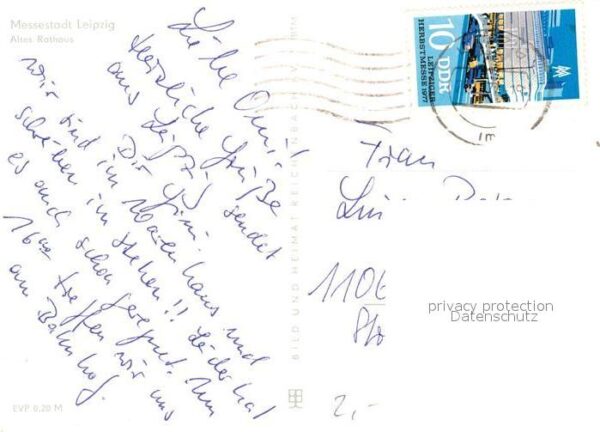 Messestadt Leipzig
Altes Rathaus
Liebe Omi!
Herzliche Grüße
aus Leipzig sendet
Dir Gini.
Wir sind im Warenhaus und
schreiben im Stehen!! Leider hat
es auch schon geregnet. Um
16 00 treffen wir uns
am Bahnhof.
EVP 0,20 M
BILD UND HEIMAT REICHENBACH
10
DDR
LEIPZIGER
HERBSTMESSE 1977
Frau
110E
privacy protection
Datenschutz
2,-